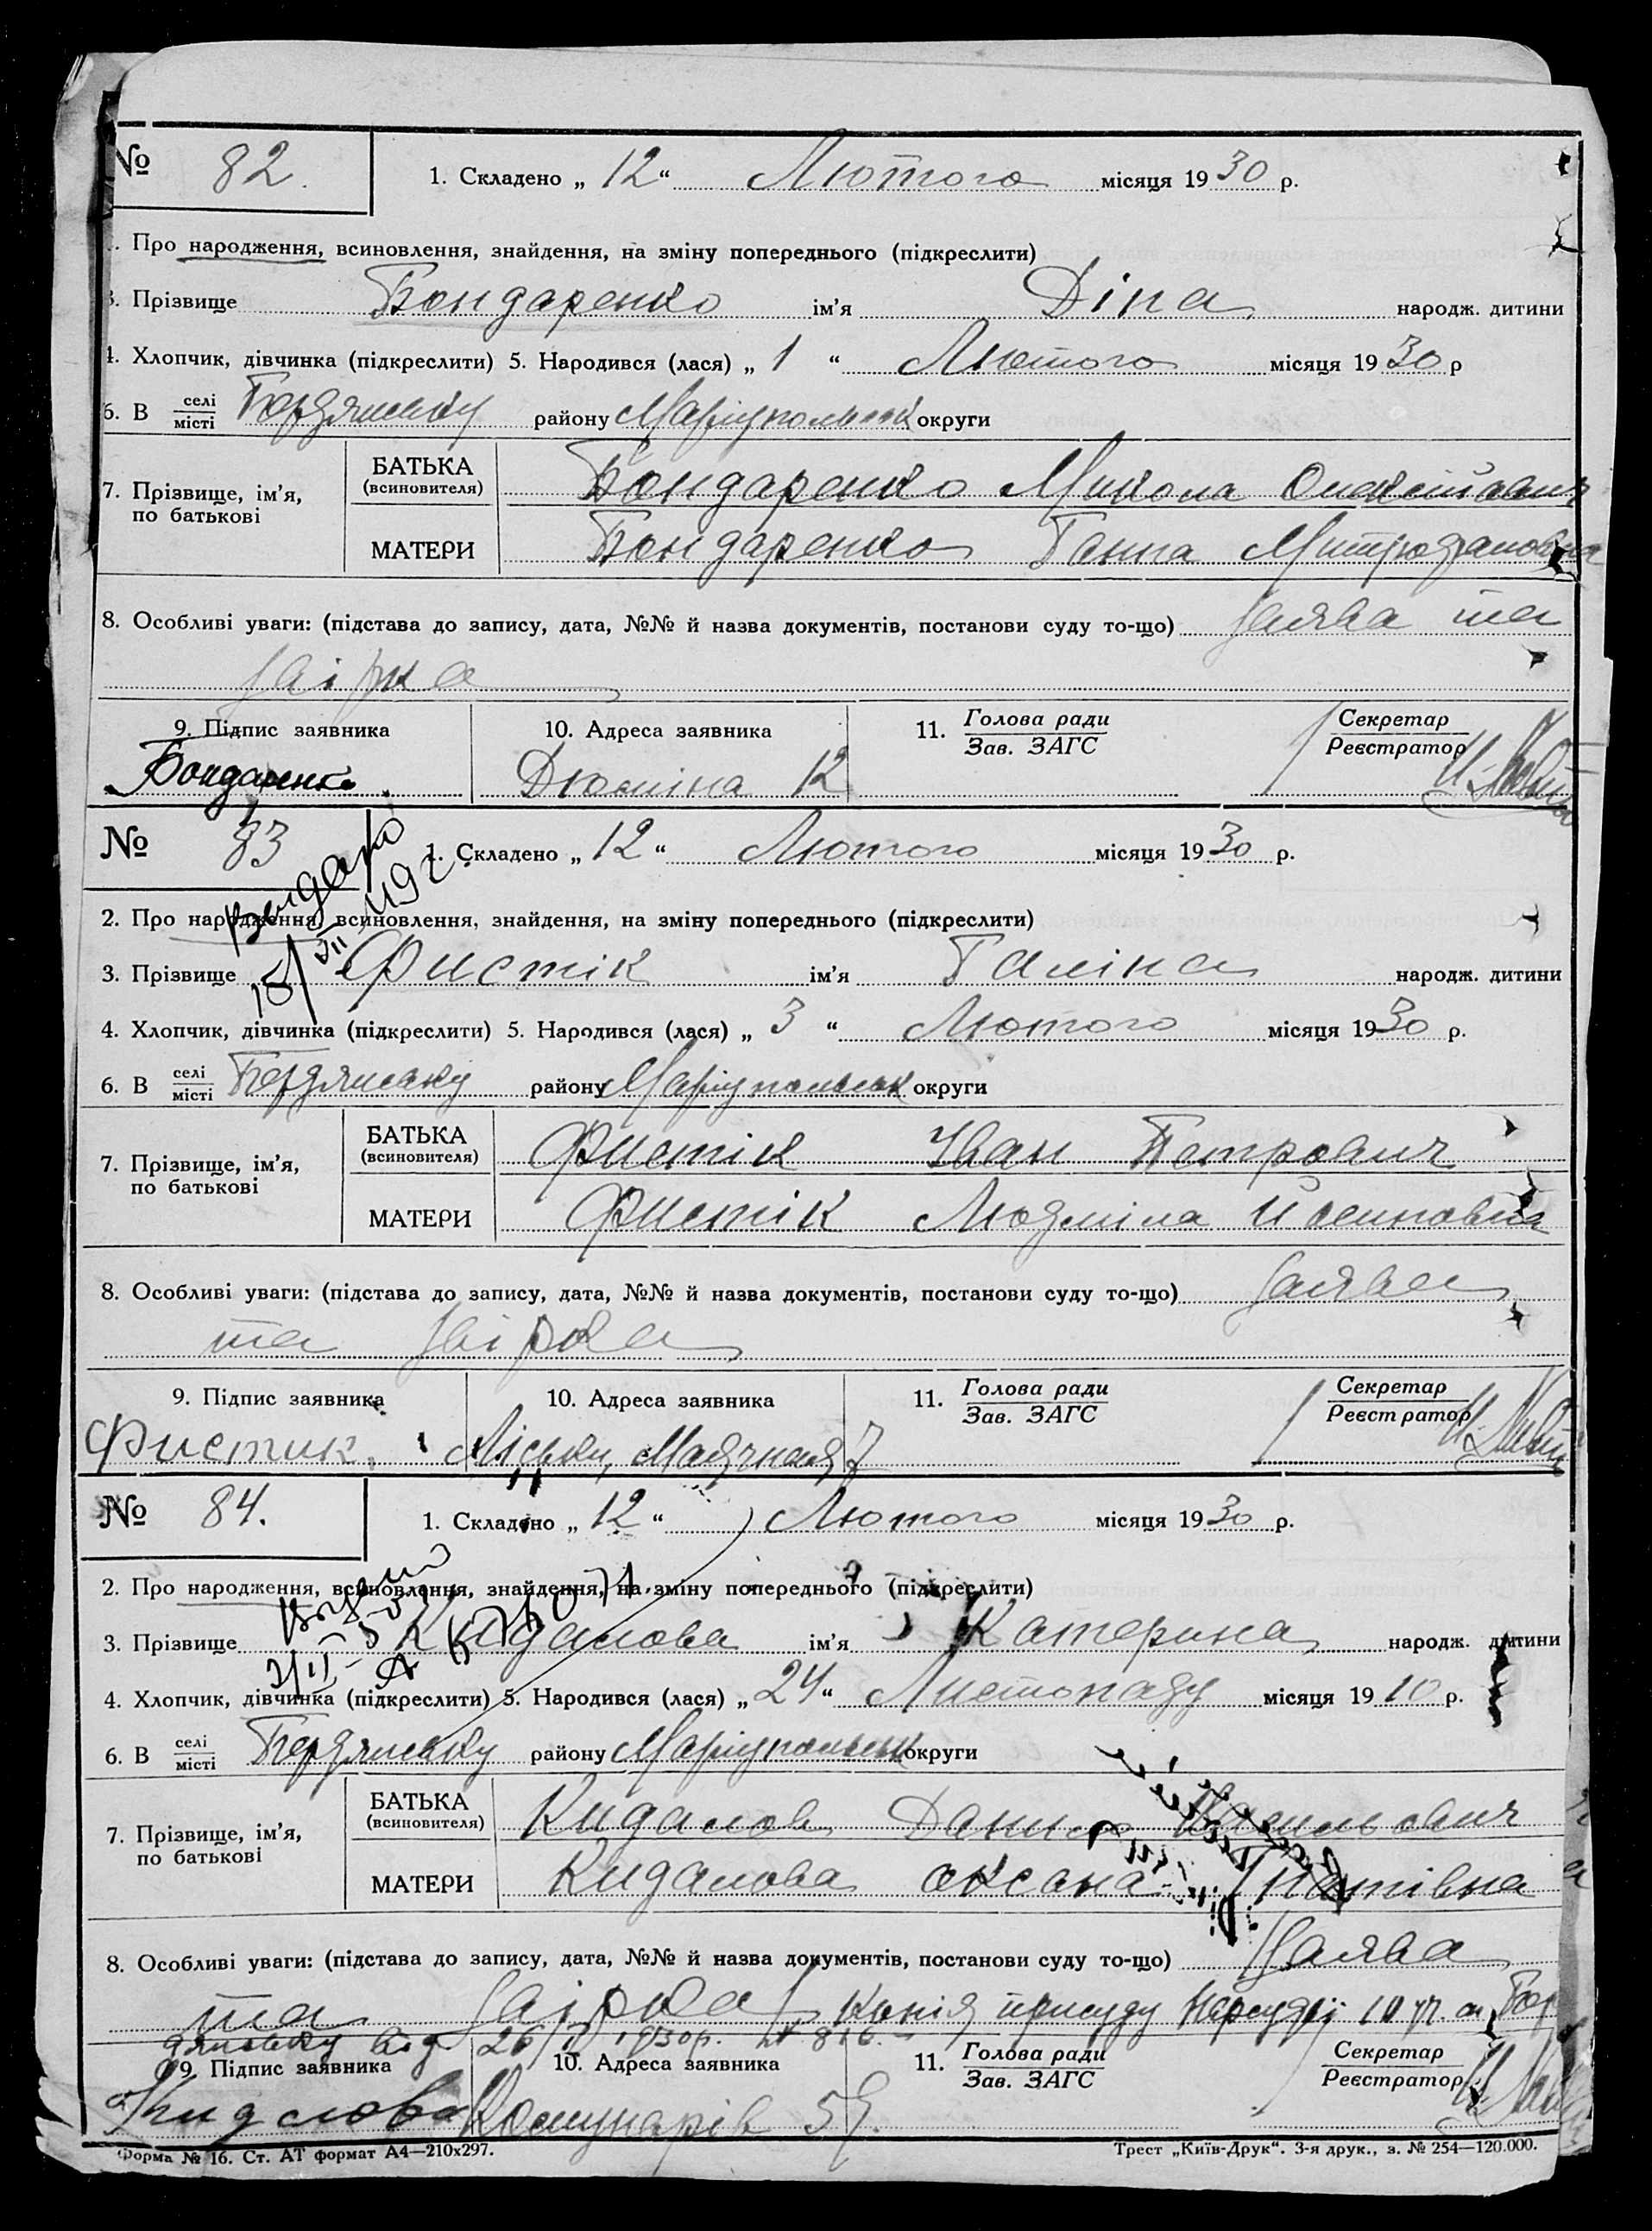 № 82. 1. Складено „ 12 “ Лютого місяця 1930 р.
Про народження, всиновлення, знайдення, на зміну попереднього (підкреслити)
3. Прізвище Бондаренко ім'я Діна народж. дитини
4. Хлопчик, дівчинка (підкреслити) 5. Народився (лася) „ 1 “ Лютого місяця 1930 р
6. В селі місті Бердянську району Маріупольськ округи
7. Прізвище, ім'я, по батькові
БАТЬКА (всиновителя) Бондаренко Микола Олексійович
МАТЕРИ Бондаренко Ганна Митрофановна
8. Особливі уваги: (підстава до запису, дата, №№ й назва документів, постанови суду то-що) Заява та
звірка
9. Підпис заявника 10. Адреса заявника 11. Голова ради Зав. ЗАГС Секретар Реєстратор
Бондаренко. Дюміна 12
№ 83 1. Складено „ 12 “ Лютого місяця 1930 р.
2. Про народження, всиновлення, знайдення, на зміну попереднього (підкреслити)
3. Прізвище Фистік ім'я Галіна народж. дитини
4. Хлопчик, дівчинка (підкреслити) 5. Народився (лася) „ 3 “ Лютого місяця 1930 р.
6. В селі місті Бердянську району Маріупольськ округи
7. Прізвище, ім'я, по батькові
БАТЬКА (всиновителя) Фистік Іван Петрович
МАТЕРИ Фистік Людміла Йосиповна
8. Особливі уваги: (підстава до запису, дата, №№ й назва документів, постанови суду то-що) Заява
та звірка
9. Підпис заявника 10. Адреса заявника 11. Голова ради Зав. ЗАГС Секретар Реєстратор
Фистик. Лиски, Маячная 7
№ 84. 1. Складено „ 12 “ Лютого місяця 1930 р.
2. Про народження, всиновлення, знайдення, на зміну попереднього (підкреслити)
3. Прізвище Кидалова ім'я Катерина народж. дитини
4. Хлопчик, дівчинка (підкреслити) 5. Народився (лася) „ 24 “ Листопаду місяця 1910 р.
6. В селі місті Бердянську району Маріупольськ округи
7. Прізвище, ім'я, по батькові
БАТЬКА (всиновителя) Кидалов Данило Васильович
МАТЕРИ Кидалова Оксана Гнатівна
8. Особливі уваги: (підстава до запису, дата, №№ й назва документів, постанови суду то-що) Заява
та звірка копія присуду Нарсудді 10 уч. м. Бер
дянську від 26/I 1930 р. № 816.
9. Підпис заявника 10. Адреса заявника 11. Голова ради Зав. ЗАГС Секретар Реєстратор
Кидалова Комунарів 57.
Форма № 16. Ст. АТ формат А4—210х297. Трест „Київ-Друк“. 3-я друк., з. № 254—120.000.